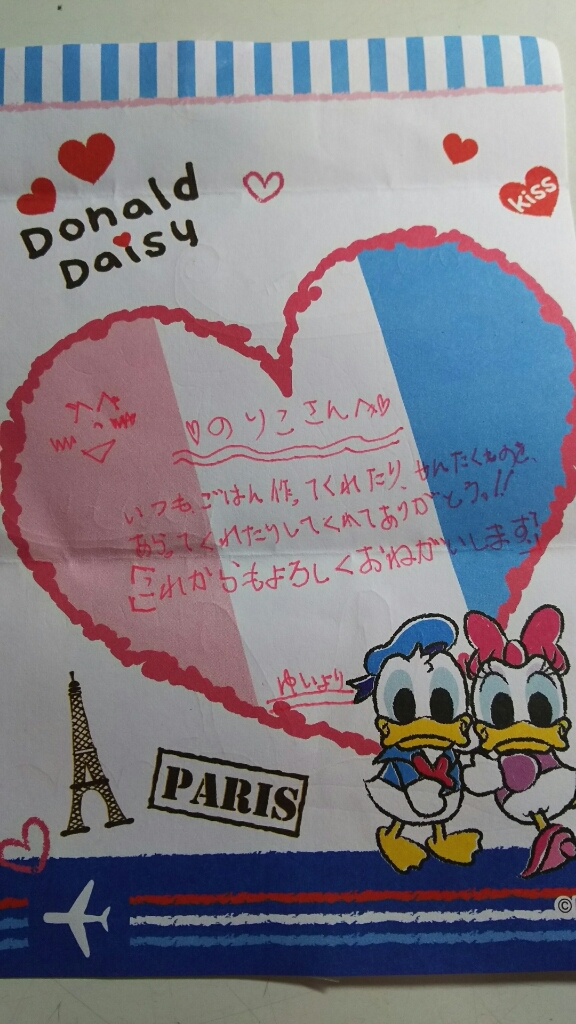 Donald
Daisy
kiss
♡のりこさんへ♡
いつもごはん作ってくれたり、せんたくものを、
あらってくれたりしてくれてありがとう。!!
「これからもよろしくおねがいします」
ゆいより
PARIS
©